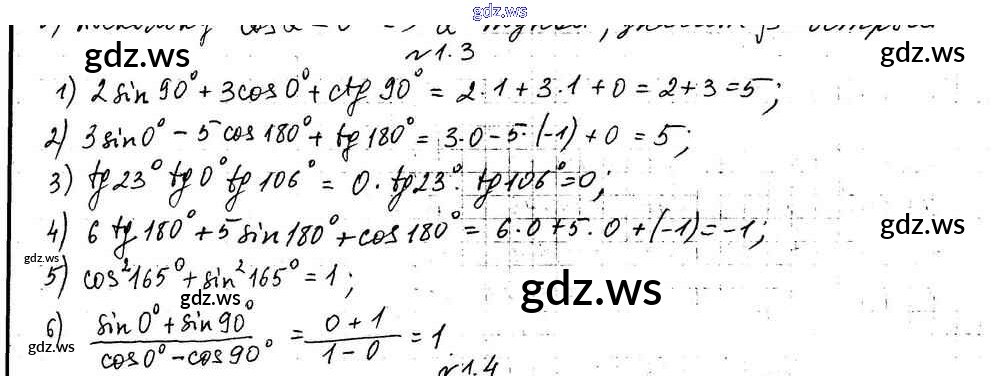 gdz.ws
cos α
gdz.ws
№1.3
gdz.ws
1) 2 sin 90° + 3 cos 0° + ctg 90° = 2·1 + 3·1 + 0 = 2 + 3 = 5;
2) 3 sin 0° - 5 cos 180° + tg 180° = 3·0 - 5·(-1) + 0 = 5;
3) tg 23° tg 0° tg 106° = 0 · tg 23° · tg 106° = 0;
4) 6 tg 180° + 5 sin 180° + cos 180° = 6·0 + 5·0 + (-1) = -1;
gdz.ws
gdz.ws
5) cos² 165° + sin² 165° = 1;
gdz.ws
gdz.ws
6) (sin 0° + sin 90°) / (cos 0° - cos 90°) = (0 + 1) / (1 - 0) = 1
gdz.ws
№1.4